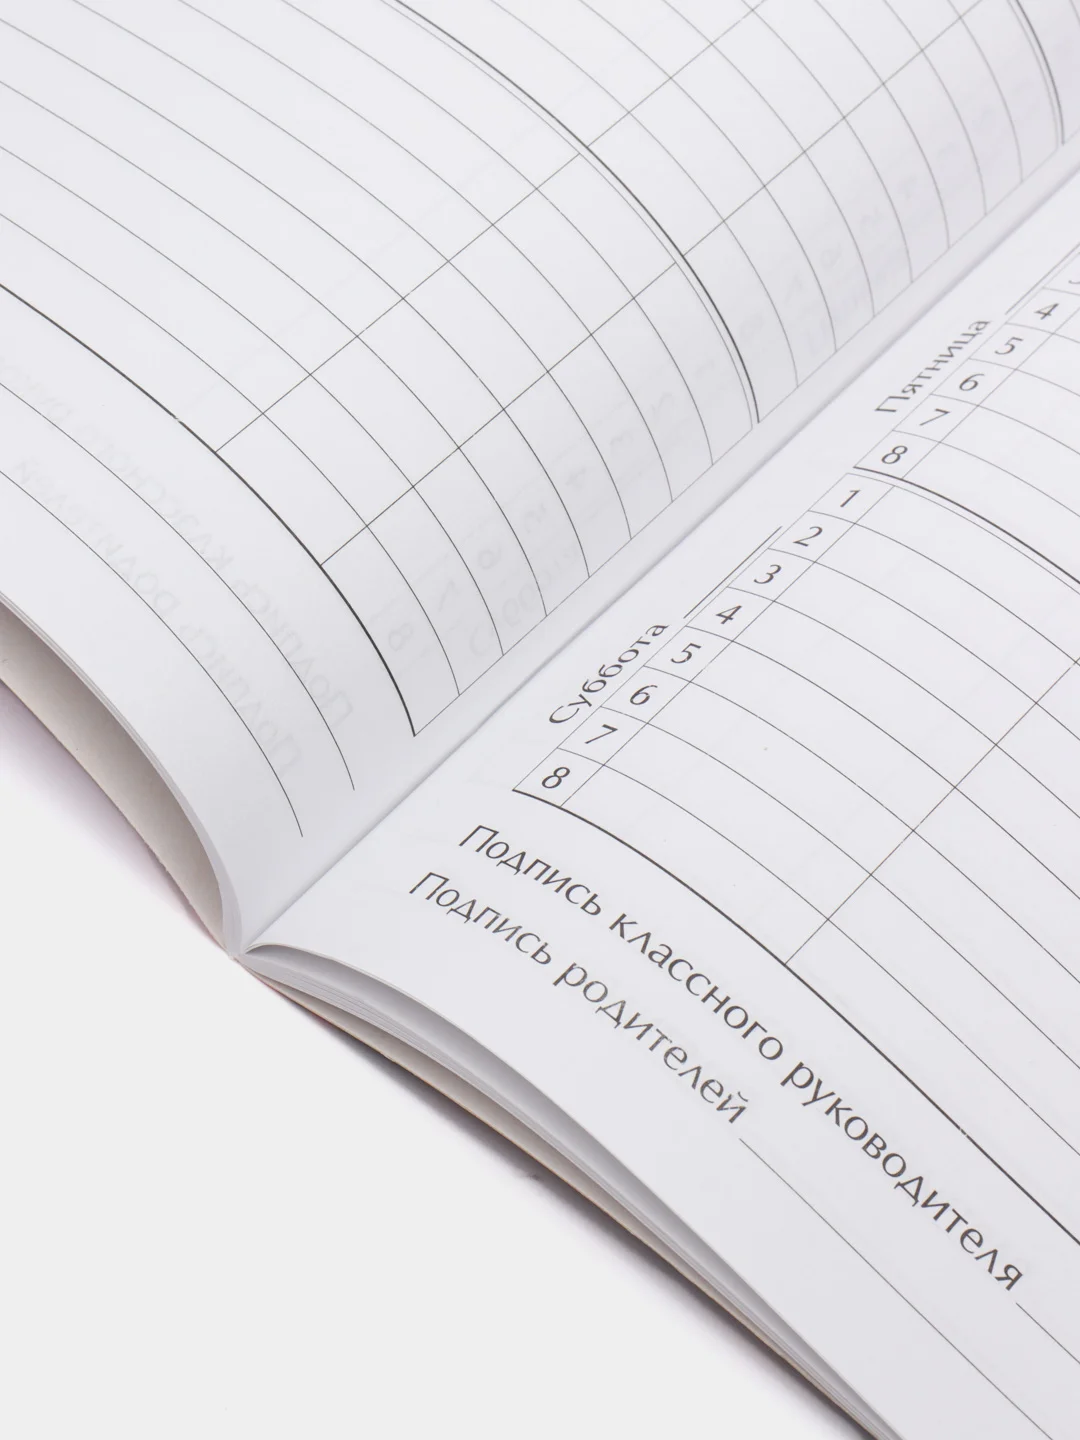 Пятница
4
5
6
7
8
Суббота
1
2
3
4
5
6
7
8
Подпись классного руководителя
Подпись родителей